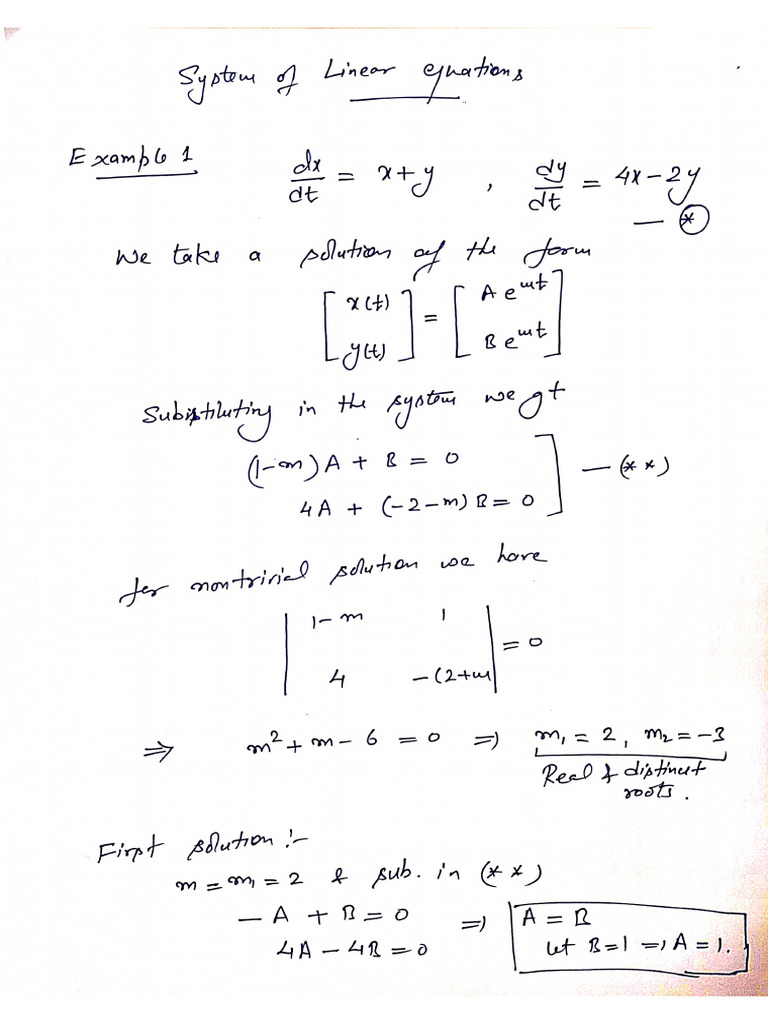 System of Linear equations
Example 1 dx/dt = x+y , dy/dt = 4x-2y
— (*)
We take a solution of the form
[x(t) y(t)] = [A e^mt B e^mt]
Substiluting in the system we gt
(1-m) A + B = 0
4A + (-2-m) B = 0 ] — (* *)
for nontrivial solution we have
| 1-m 1
4 -(2+m | = 0
⇒ m² + m - 6 = 0 ⇒ m₁ = 2, m₂ = -3
Real & distinct
roots.
First solution :-
m = m₁ = 2 & sub. in (* *)
-A + B = 0 ⇒ A = B
4A - 4B = 0 let B=1 ⇒ A = 1.